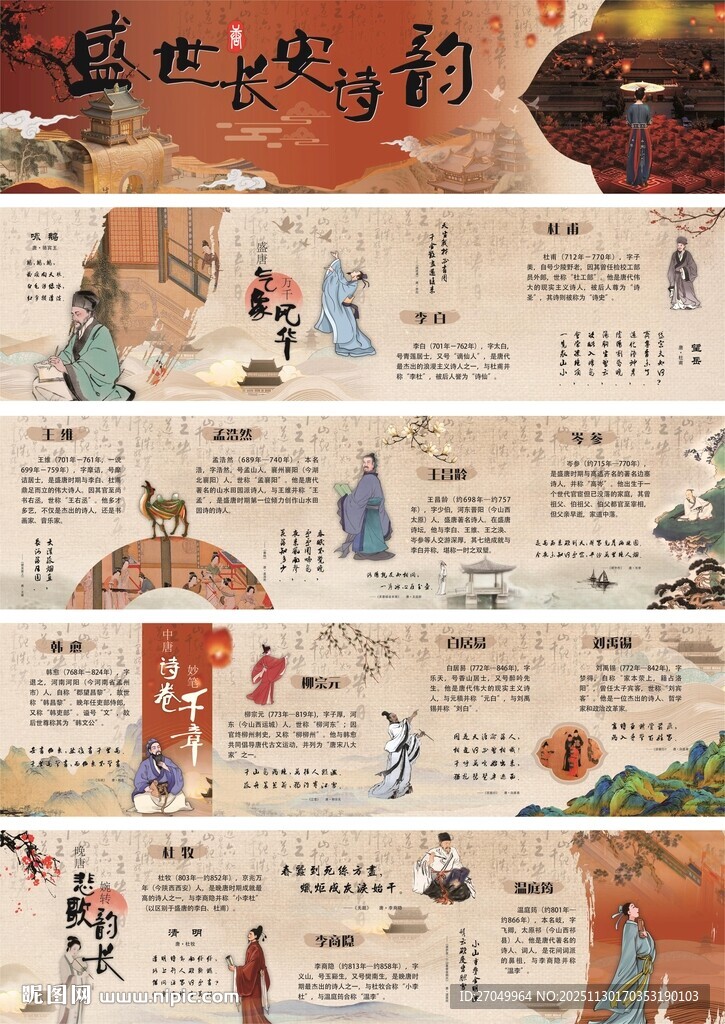 盛世长安诗韵
咏鹅
唐·骆宾王
鹅，鹅，鹅，
曲项向天歌。
白毛浮绿水，
红掌拨清波。
盛唐
气象
万千
风华
天生我材必有用
千金散尽还复来
李白
李白（701年—762年），字太白，
号青莲居士，又号“谪仙人”，是唐代
最杰出的浪漫主义诗人之一，与杜甫并
称“李杜”，被后人誉为“诗仙”。
杜甫
杜甫（712年—770年），字子
美，自号少陵野老，因其曾任检校工部
员外郎，世称“杜工部”。他是唐代伟
大的现实主义诗人，被后人尊为“诗
圣”，其诗则被称为“诗史”。
望岳
唐·杜甫
岱宗夫如何？
齐鲁青未了。
造化钟神秀，
阴阳割昏晓。
荡胸生曾云，
决眦入归鸟。
会当凌绝顶，
一览众山小。
王维
王维（701年—761年，一说
699年—759年），字摩诘，号摩
诘居士，是盛唐时期与李白、杜甫
鼎足而立的伟大诗人。因其官至尚
书右丞，世称“王右丞”。他多才
多艺，不仅是杰出的诗人，还是书
画家、音乐家。
大漠孤烟直
长河落日圆
孟浩然
孟浩然（689年—740年），本名
浩，字浩然，号孟山人，襄州襄阳（今湖
北襄阳）人，世称“孟襄阳”，他是唐代
著名的山水田园派诗人，与王维并称“王
孟”，是盛唐时期第一位倾力创作山水田
园诗的诗人。
春眠不觉晓，
处处闻啼鸟。
夜来风雨声，
花落知多少。
王昌龄
王昌龄（约698年—约757
年），字少伯，河东晋阳（今山西
太原）人，盛唐著名诗人，在盛唐
诗坛，他与李白、王维、王之涣、
岑参等人交游深厚，其七绝成就与
李白并称，堪称一时之双璧。
洛阳亲友如相问，
一片冰心在玉壶。
岑参
岑参（约715年—770年），
是盛唐时期与高适齐名的著名边塞
诗人，并称“高岑”。他出生于一
个世代官宦但已没落的家庭，其曾
祖父、伯祖父、伯父都官至宰相，
但父亲早逝，家道中落。
韩愈
韩愈（768年—824年），字
退之，河南河阳（今河南省孟州
市）人，自称“郡望昌黎”，故世
称“韩昌黎”，晚年任吏部侍郎，
又称“韩吏部”，谥号“文”，故
后世尊称其为“韩文公”。
中唐
诗卷
妙笔
千章
柳宗元
柳宗元（773年—819年），字子厚，河
东（今山西运城）人，世称“柳河东”；因
官终柳州刺史，又称“柳柳州”，他与韩愈
共同倡导唐代古文运动，并列为“唐宋八大
家”之一。
千山鸟飞绝，万径人踪灭。
孤舟蓑笠翁，独钓寒江雪。
白居易
白居易（772年—846年），字
乐天，号香山居士，又号醉吟先
生，他是唐代伟大的现实主义诗
人，与元稹并称“元白”，与刘禹
锡并称“刘白”。
刘禹锡
刘禹锡（772年—842年），字
梦得，自称“家本荥上，籍占洛
阳”，曾任太子宾客，世称“刘宾
客”，他是一位杰出的诗人、哲学
家和政治改革家。
晚唐
悲歌
婉转
韵长
杜牧
杜牧（803年—约852年），京兆万
年（今陕西西安）人，是晚唐时期成就最
高的诗人之一，与李商隐并称“小李杜”
（以区别于盛唐的李白、杜甫）。
清明
唐·杜牧
清明时节雨纷纷，
路上行人欲断魂。
借问酒家何处有？
春蚕到死丝方尽，
蜡炬成灰泪始干。
——《无题》 唐·李商隐
李商隐
李商隐（约813年—约858年），字
义山，号玉谿生，又号樊南生，是晚唐时
期最杰出的诗人之一，与杜牧合称“小李
杜”，与温庭筠合称“温李”。
温庭筠
温庭筠（约801年—
约866年），本名岐，字
飞卿，太原祁（今山西祁
县）人，他是唐代著名的
诗人、词人，是花间词派
的鼻祖，与李商隐并称
“温李”。
昵图网 www.nipic.com
ID:27049964 NO:20251130170353190103